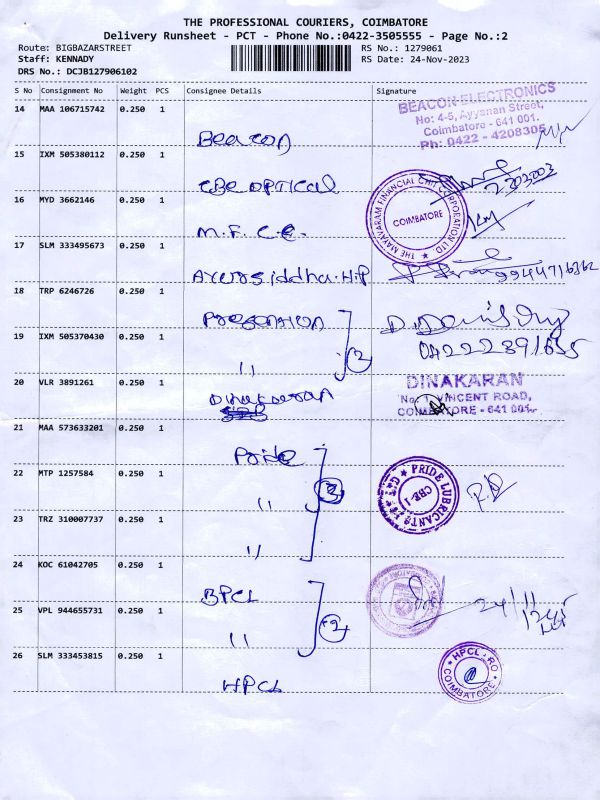 THE PROFESSIONAL COURIERS, COIMBATORE
Delivery Runsheet - PCT - Phone No.:0422-3505555 - Page No.:2
Route: BIGBAZARSTREET RS No.: 1279061
Staff: KENNADY RS Date: 24-Nov-2023
DRS No.: DCJB127906102
S No Consignment No Weight PCS Consignee Details Signature
14 MAA 106715742 0.250 1 Beacon
BEACON ELECTRONICS
No: 4-5, Ayyanan Street,
Coimbatore - 641 001.
Ph: 0422 - 4208305
15 IXM 505380112 0.250 1 CBE OPTICAL
16 MYD 3662146 0.250 1 M.F.C.C.
THE MAYAVARAM FINANCIAL CHIT CORPORATION LTD
COIMBATORE
17 SLM 333495673 0.250 1 Ayursiddha.H.P 9944716362
18 TRP 6246726 0.250 1
19 IXM 505370430 0.250 1 " 2 04222391635
20 VLR 3891261 0.250 1 Dinakaran
DINAKARAN
No: 1, VINCENT ROAD,
COIMBATORE - 641 001.
21 MAA 573633201 0.250 1 Pride
22 MTP 1257584 0.250 1 " 3
PRIDE LUBRICANTS
CBE-1
23 TRZ 310007737 0.250 1 "
24 KOC 61042705 0.250 1 BPCL
25 VPL 944655731 0.250 1 " 2 24/11
26 SLM 333453815 0.250 1 HPCL
HPCL-RO
COIMBATORE